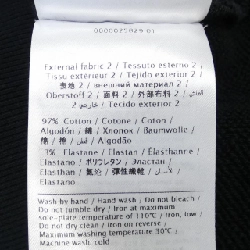 External fabric 2 / Tessuto esterno 2 /
Tissu extérieur 2 / Tejido exterior 2 /
表地 2 / внешний материал 2 /
Oberstoff 2 / 面料 2 / 外部布料 2 /
2 / Tecido exterior 2
97% Cotton / Cotone / Coton /
Algodón / 綿 / Хлопок / Baumwolle /
棉 / 棉 / Algodão
3% Elastane / Elastan / Elasthanne /
Elastano / ポリウレタン / Эластан /
Elasthan / 氨纶 / 彈性纖維 /
Elastano
Wash by hand / Hand wash / Do not bleach /
Do not tumble dry / Iron at maximum
sole-plate temperature of 110°C / Iron, low
Maximum washing temperature 30°C /
Machine wash, cold